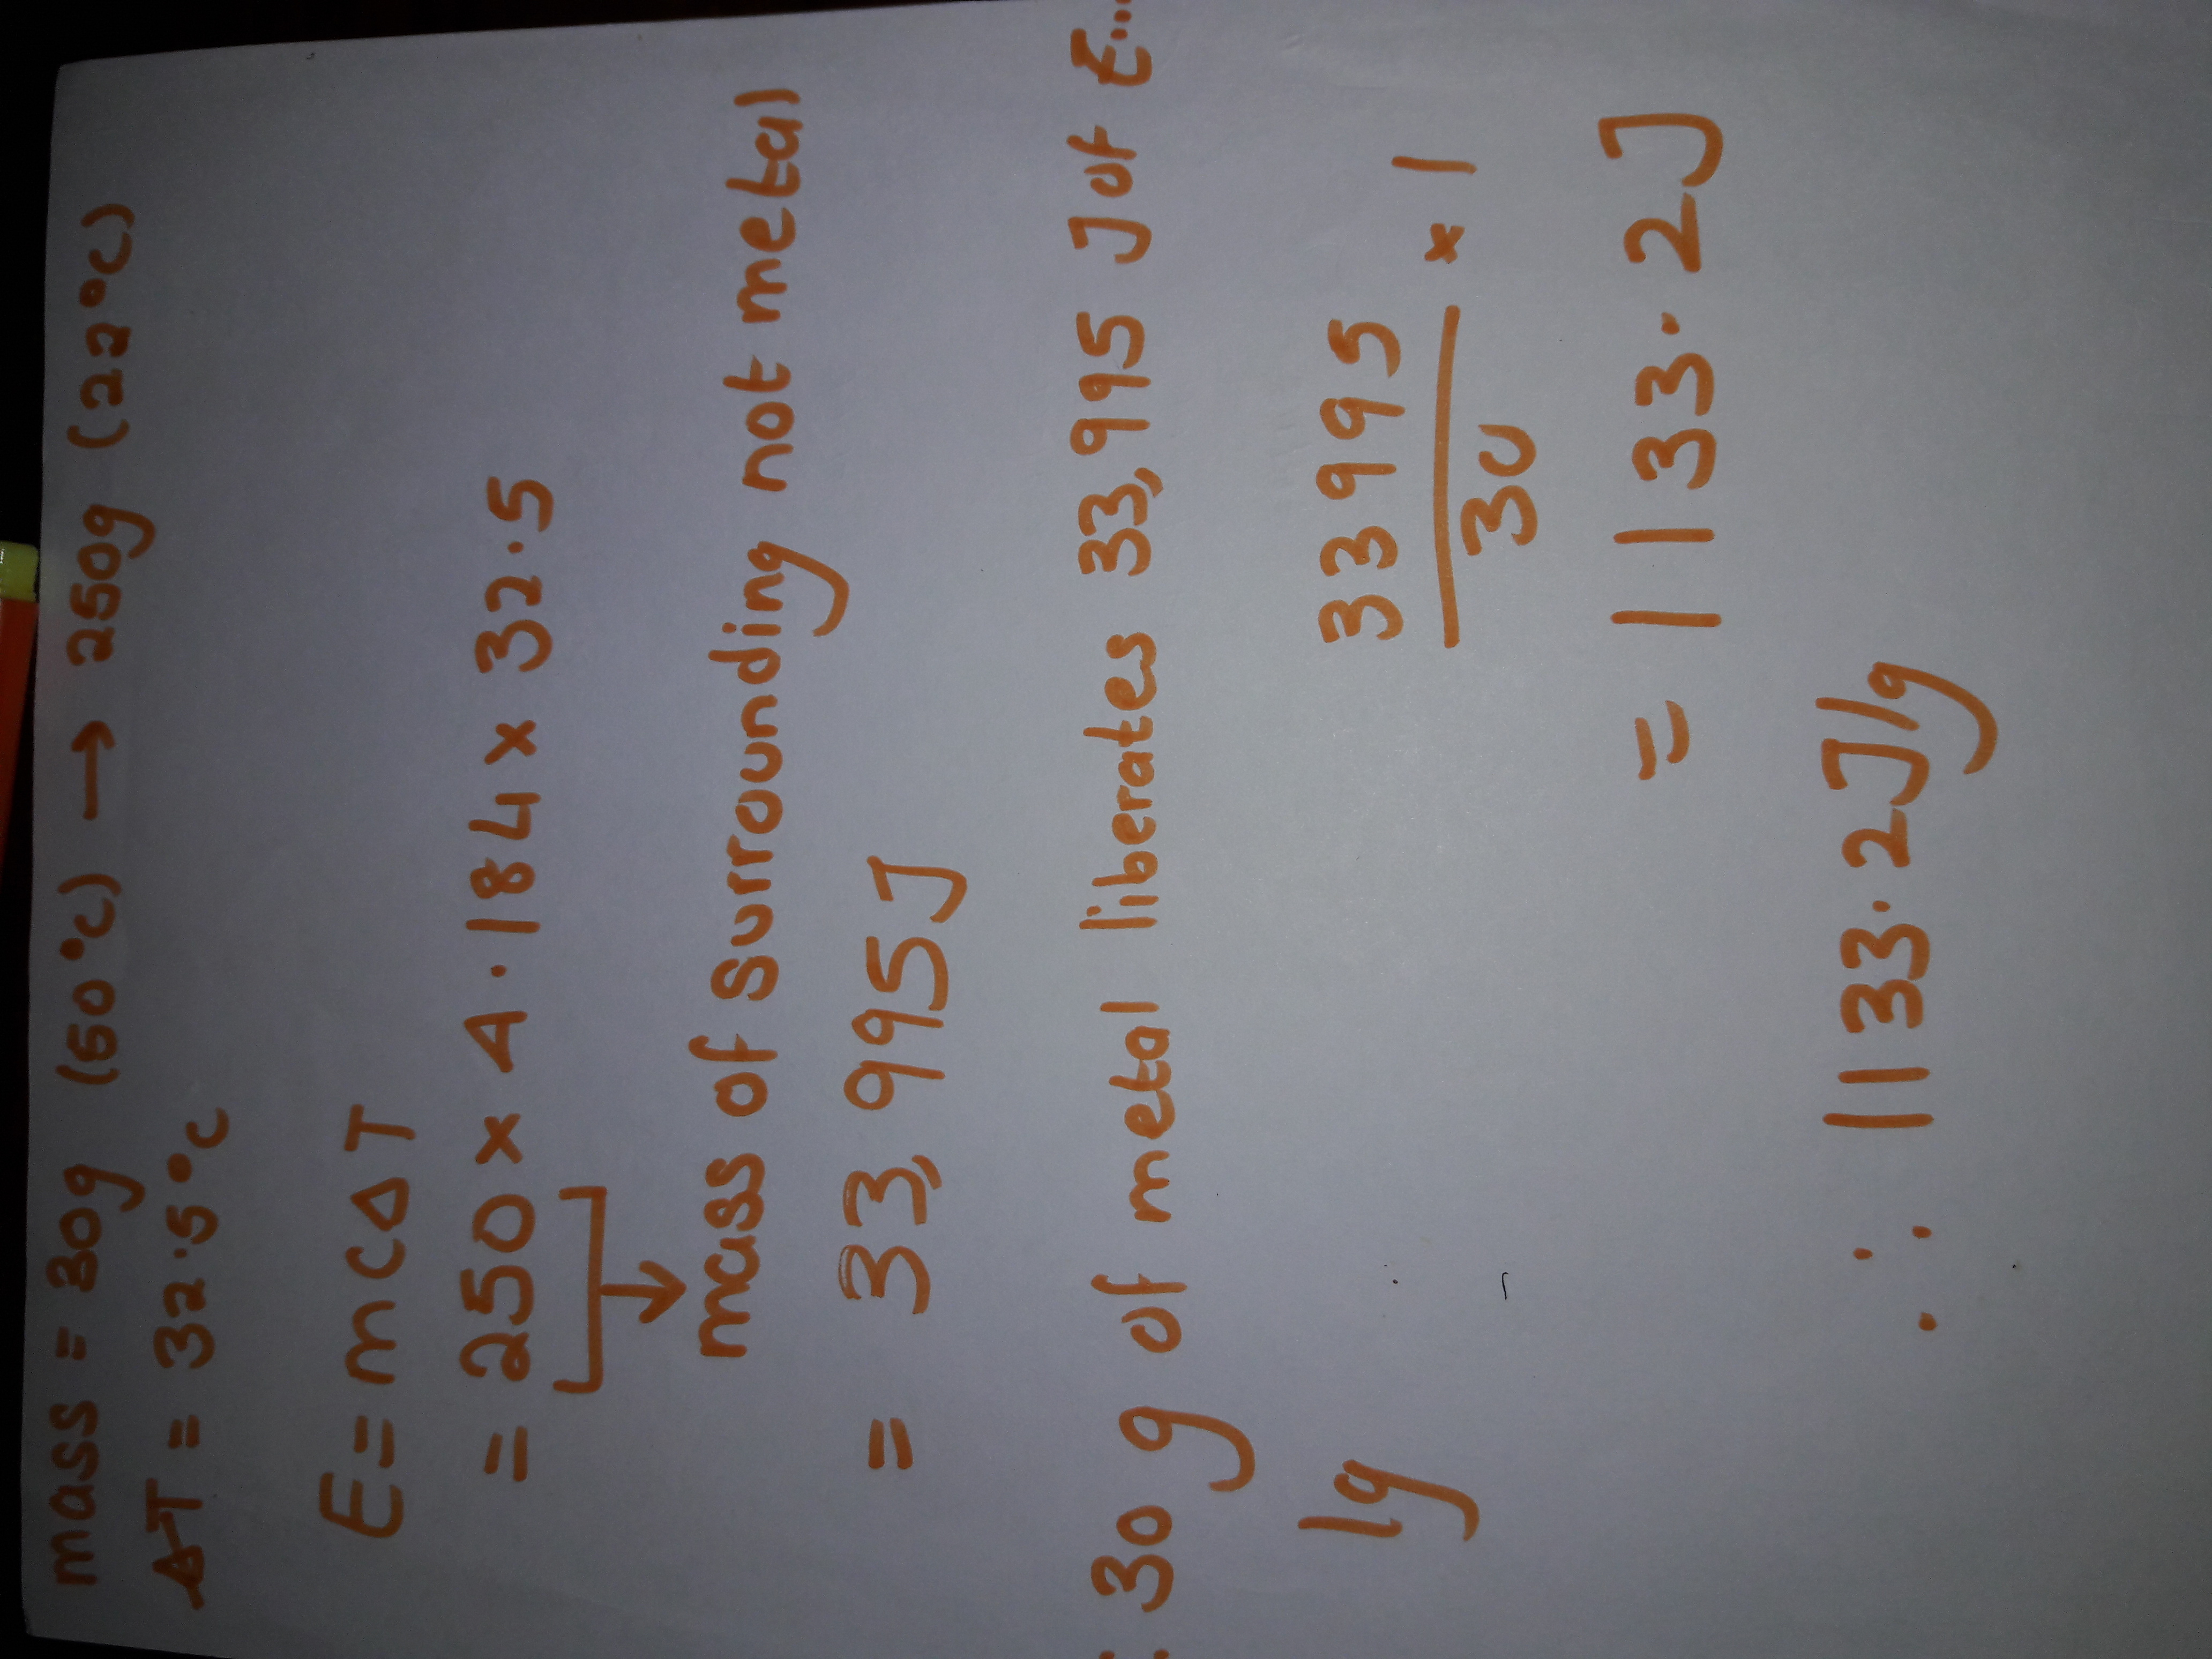 mass = 30g (50°C) → 250g (22°C)
ΔT = 32.5°C
E = mcΔT
= 250 × 4.184 × 32.5
mass of surrounding not metal
= 33,995J
: 30 g of metal liberates 33,995 J of E...
1g 33995/30 × 1
= 1133.2J
∴ 1133.2J/g